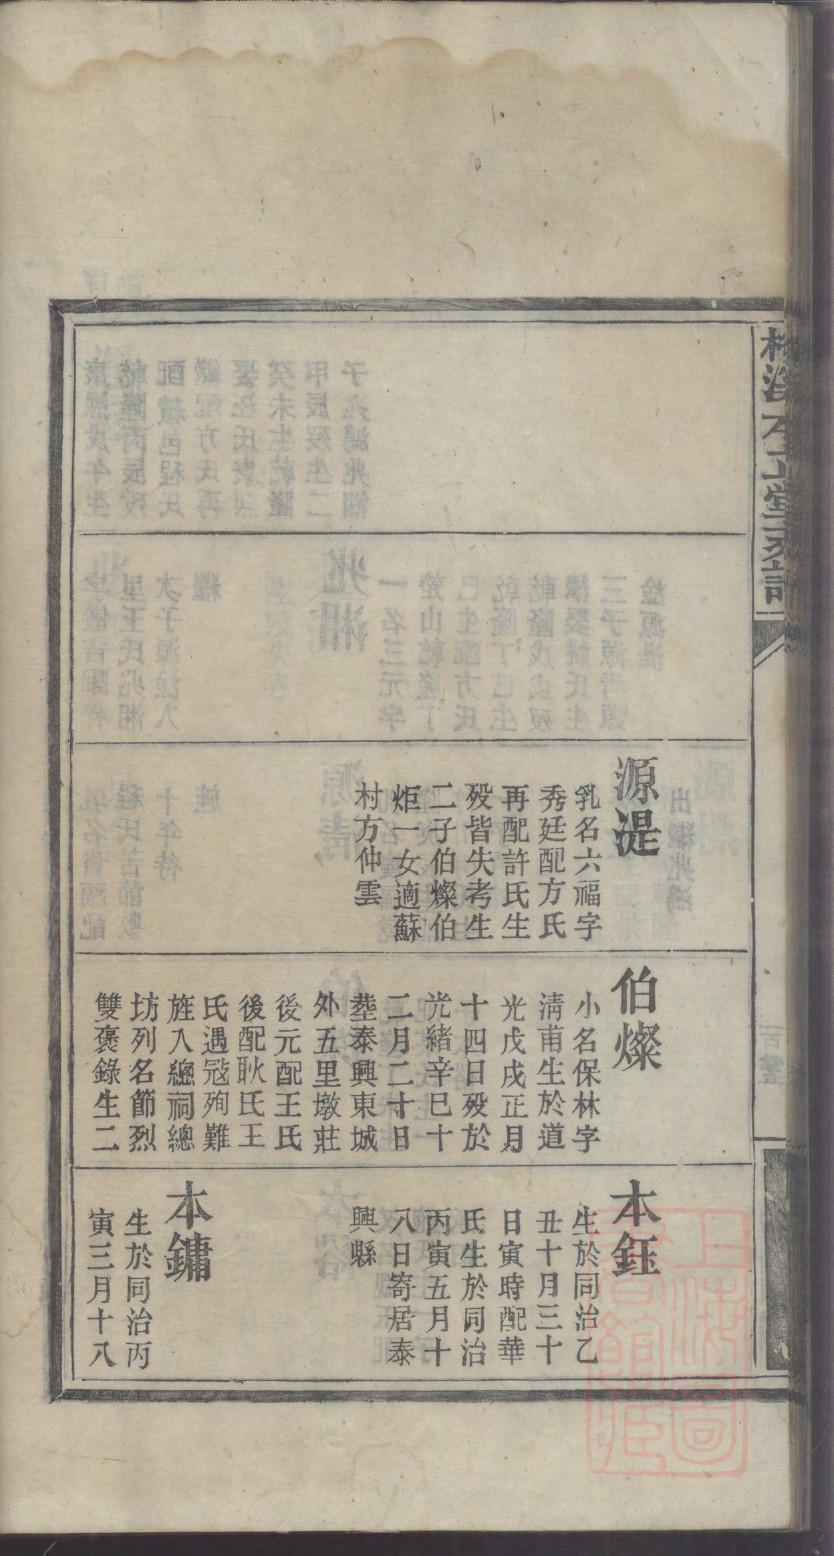 源湜
乳名六福字
秀廷配方氏
再配許氏生
歿皆失考生
二子伯燦伯
炬一女適蘇
村方仲雲
伯燦
小名保林字
淸甫生於道
光戊戌正月
十四日歿於
光緒辛巳十
二月二十日
塟泰興東城
外五里墩莊
後元配王氏
後配耿氏王
氏遇冦殉難
旌入總祠總
坊列名節烈
雙褒錄生二
本鈺
生於同治乙
丑十月三十
日寅時配華
氏生於同治
丙寅五月十
八日寄居泰
興縣
本鏞
生於同治丙
寅三月十八
上海圖書館藏